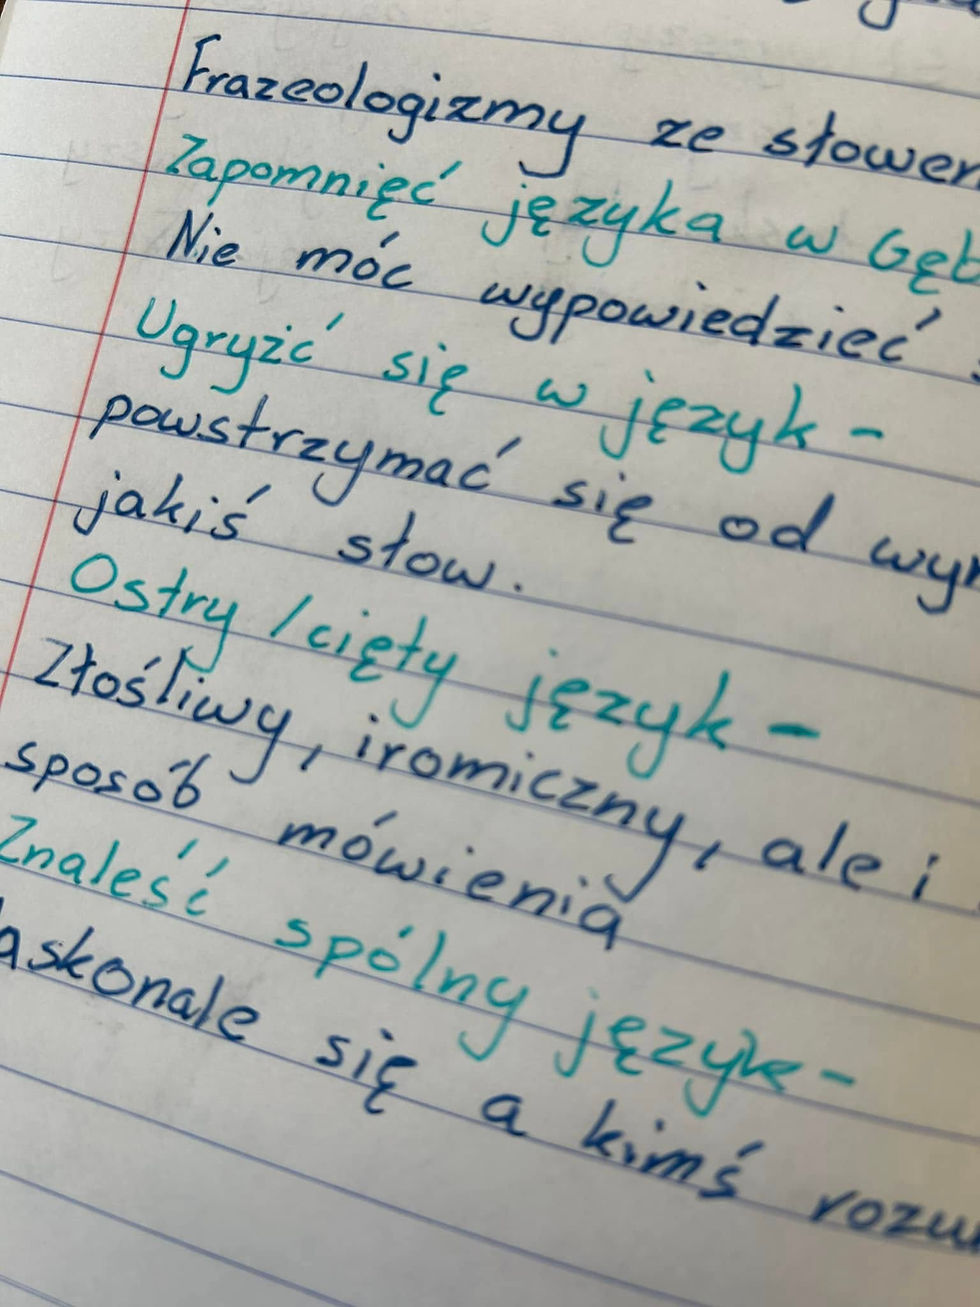 Frazeologizmy ze słowem
Zapomnieć języka w Gęb
Nie móc wypowiedzieć
Ugryźć się w język -
powstrzymać się od wyp
jakiś słow.
Ostry / cięty język -
Złośliwy, iromiczny, ale i
sposób mówienia
Znaleść spólny język -
askonale się a kimś rozu